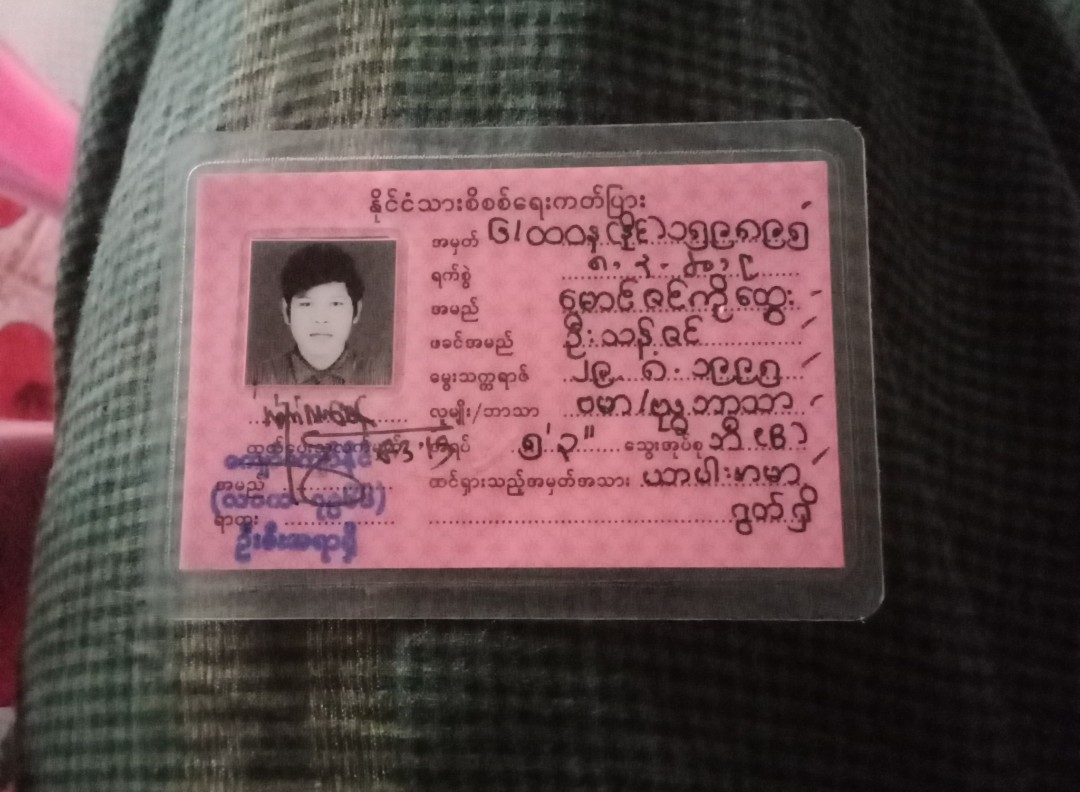 နိုင်ငံသားစိစစ်ရေးကတ်ပြား
အမှတ် ၆/ထဝန(နိုင်)၁၅၉၈၉၅
ရက်စွဲ
အမည် မောင်ဇင်ကိုထွေး
ဖခင်အမည် ဦးသန့်ဇင်
မွေးသက္ကရာဇ် ၂၉.၈.၁၉၉၅
လူမျိုး/ဘာသာ ဗမာ/ဗုဒ္ဓဘာသာ
အရပ် ၅'၃" သွေးအုပ်စု ဘီ(B)
အမည် ထင်ရှားသည့်အမှတ်အသား ယာပါးနာမာ
ရာထူး ရွတ်ရှိ
ဦးစီးအရာရှိ